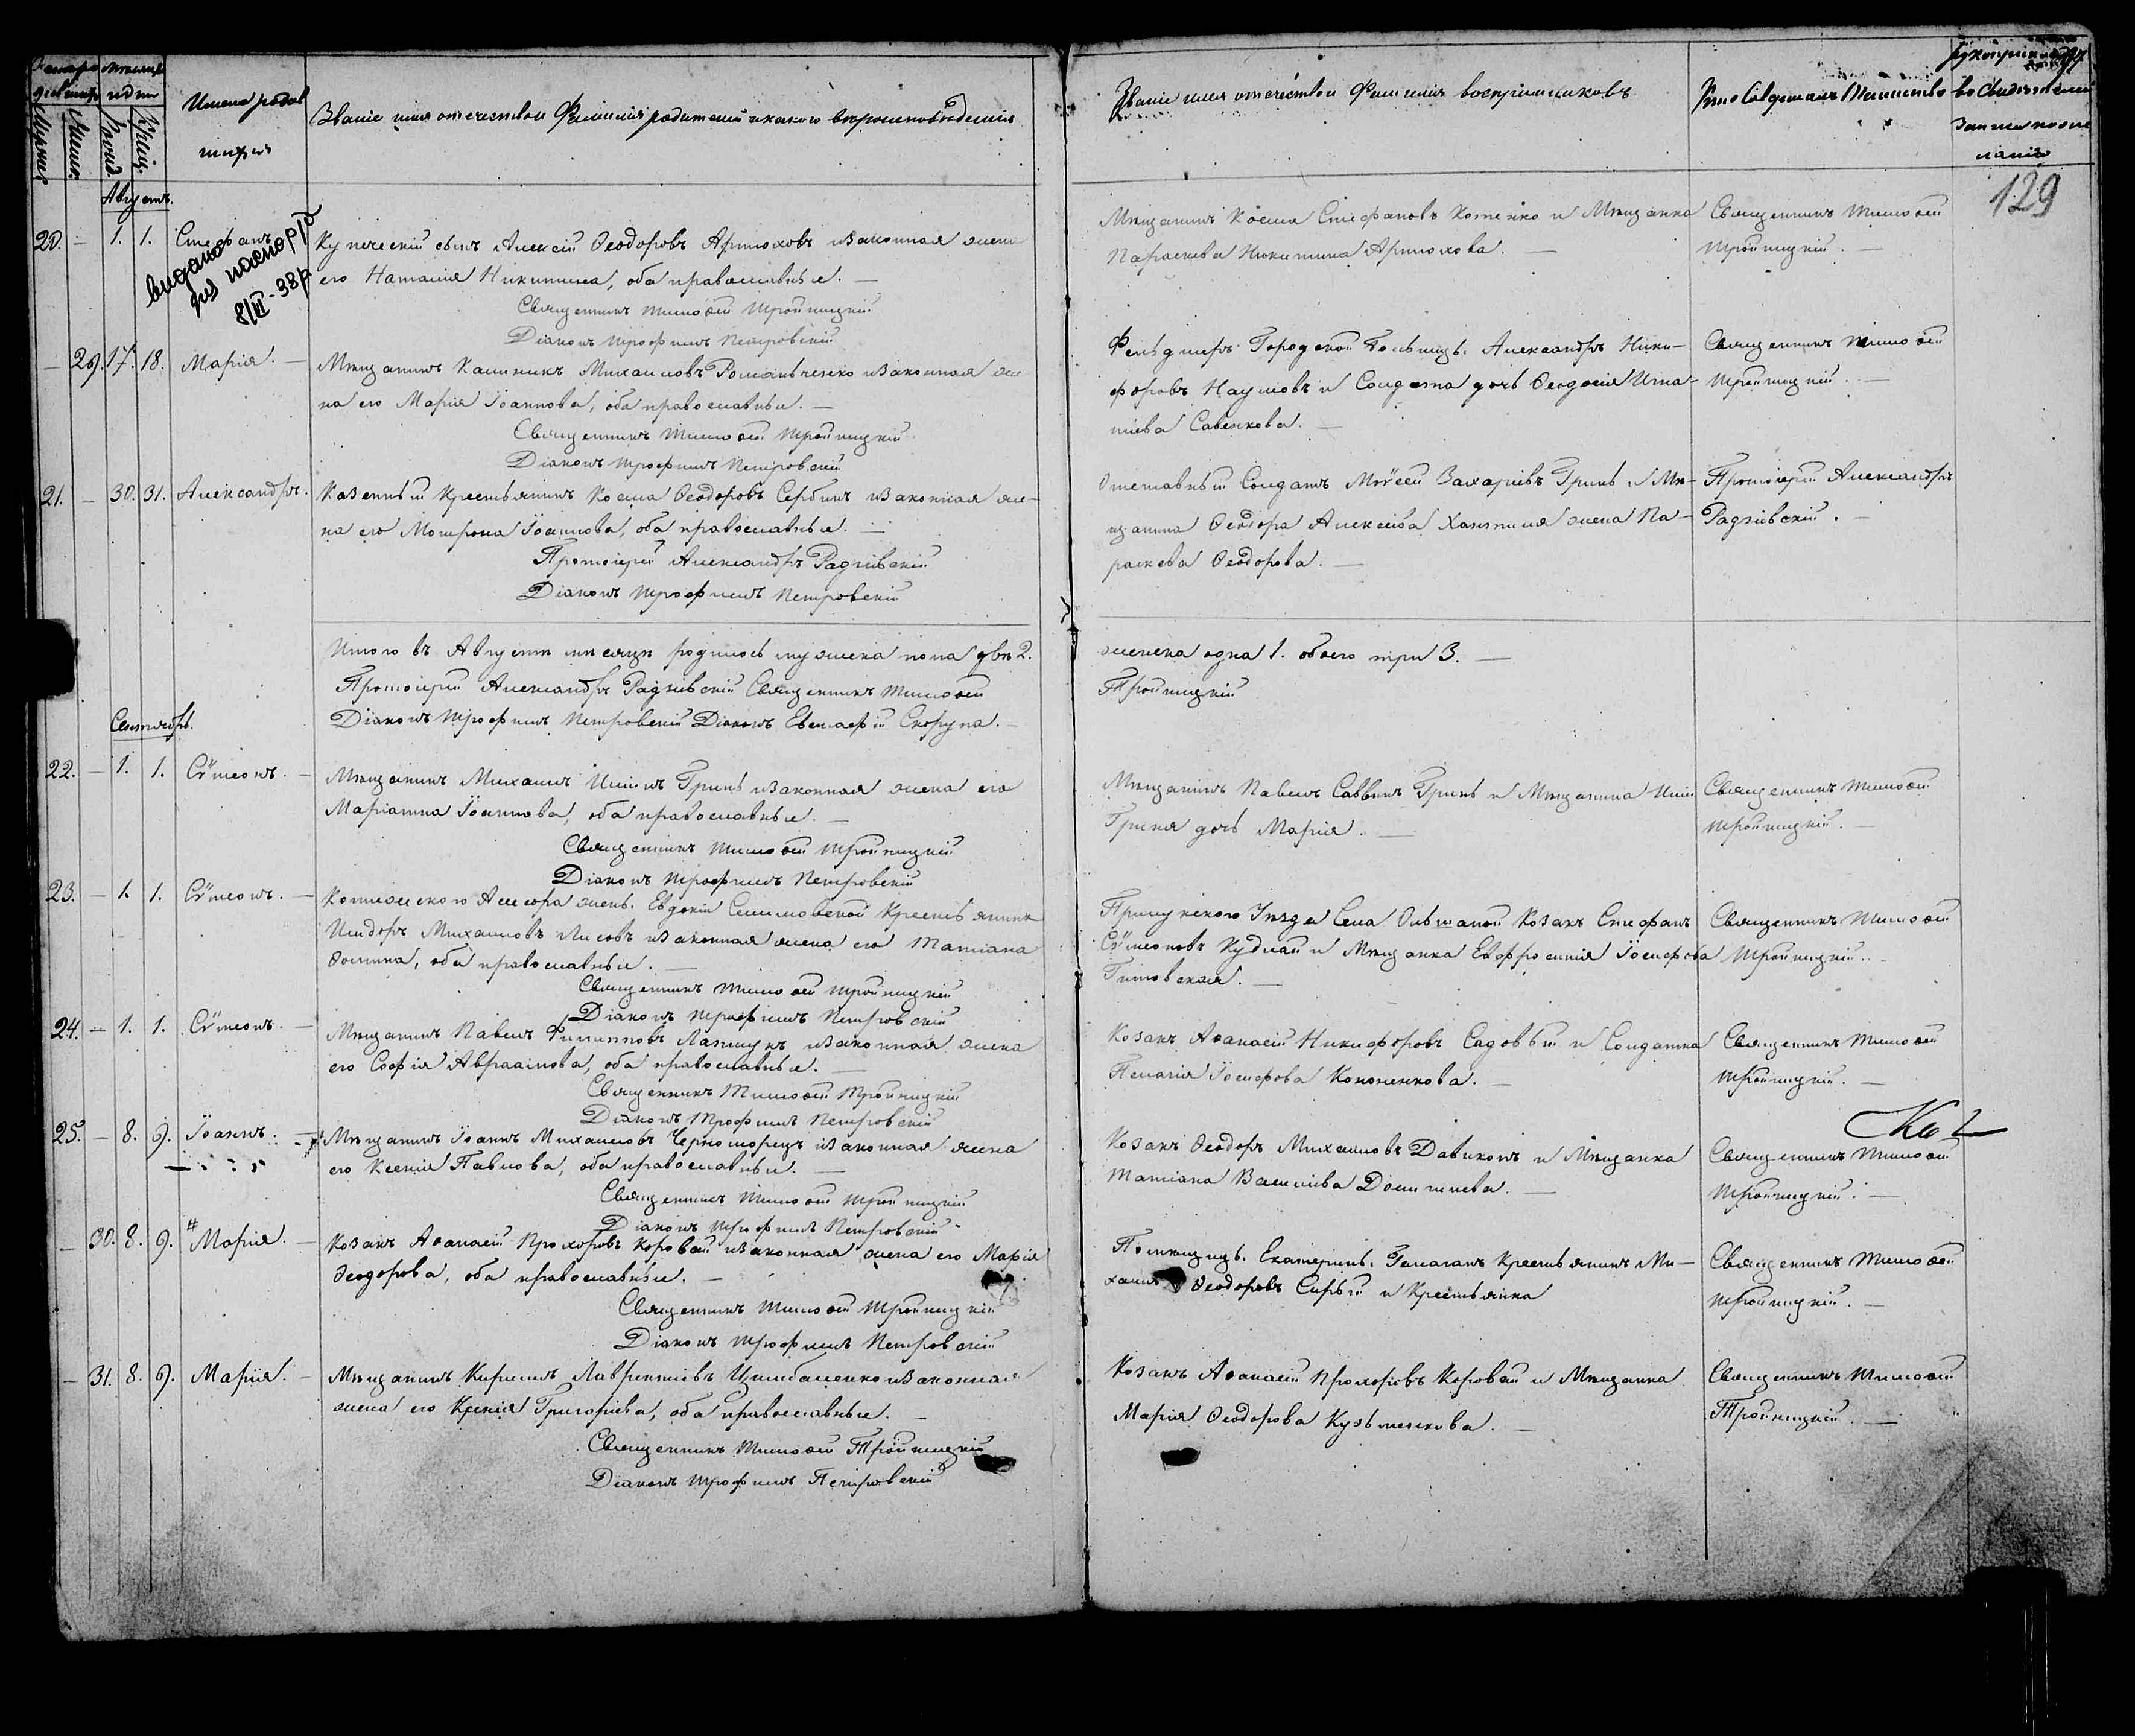 Имена родив
шихся
Званіе имя отечество и Фамилія родителей и какого вѣроисповѣданія
Званіе имя отечество и Фамилія воспріемниковъ
Кто совершалъ Таинство
129
Августъ.
20. — 1. 1. Стефанъ
видано
для паспорта
Купеческій сынъ Алексій Ѳеодоровъ Артюховъ и законная жена
его Наталія Никитина, оба православные. —
Священникъ Тимоѳей Тройницкій
Діаконъ Трофимъ Петровскій
Мѣщанинъ Косма Стефановъ Котенко и Мѣщанка
Параскева Никитина Артюхова. —
Священникъ Тимоѳей
Тройницкій. —
— 29. 17. 18. Марія. —
Мѣщанинъ Калиникъ Михаиловъ Романченко и законная же
на его Марія Іоаннова, оба православные. —
Священникъ Тимоѳей Тройницкій
Діаконъ Трофимъ Петровскій
Фельдшеръ Городской Больницы. Александръ Ники-
форовъ Наумовъ и Солдатка дочь Ѳеодосія Игна-
тіева Савенкова. —
Священникъ Тимоѳей
Тройницкій. —
21. — 30. 31. Александръ.
Казенный Крестьянинъ Косма Ѳеодоровъ Сербинъ и законная же-
на его Мотрона Іоаннова, оба православные. —
Протоіерей Александръ Радзіевскій
Діаконъ Трофимъ Петровскій
Отставный Солдатъ Мойсей Захаріевъ Гринь и Мѣ-
щанина Ѳеодора Алексіева жена Па-
раскева Ѳеодорова. —
Протоіерей Александръ
Радзіевскій. —
Итого въ Августѣ мѣсяцѣ родилось мужеска пола два 2.
женска одна 1. обоего три 3. —
Протоіерей Александръ Радзіевскій Священникъ Тимоѳей
Тройницкій
Діаконъ Трофимъ Петровскій Діаконъ Евстафій Скорупа. —
Сентябрь.
22. — 1. 1. Сѷмеонъ. —
Мѣщанинъ Михаилъ Иліинъ Гринь и законная жена его
Маріанна Іоаннова, оба православные. —
Священникъ Тимоѳей Тройницкій
Діаконъ Трофимъ Петровскій
Мѣщанинъ Павелъ Саввинъ Гринь и Мѣщанина Иліи
Гриня дочь Марія. —
Священникъ Тимоѳей
Тройницкій. —
23. — 1. 1. Сѷмеонъ. —
Коллежского Ассесора жены. Евдокіи Крестьянинъ
Исидоръ Михаиловъ Лисовъ и законная жена его Татіана
Ѳомина, оба православные. —
Священникъ Тимоѳей Тройницкій
Діаконъ Трофимъ Петровскій
Прилуцкого Уѣзда Села Ольшаной Козакъ Стефанъ
Сѷмеоновъ Кудлай и Мѣщанка Евфросинія Іосифова
Гитовская. —
Священникъ Тимоѳей
Тройницкій. —
24. — 1. 1. Сѷмеонъ. —
Мѣщанинъ Павелъ Филипповъ Лапшукъ и законная жена
его Софія Авраамова, оба православные. —
Священникъ Тимоѳей Тройницкій
Діаконъ Трофимъ Петровскій
Козакъ Аѳанасій Никифоровъ Садовый и Солдатка
Пелагія Іосифова Кононенкова. —
Священникъ Тимоѳей
Тройницкій. —
25. — 8. 9. Іоаннъ. —
Мѣщанинъ Іоаннъ Михаиловъ Черноморецъ и законная жена
его Ксенія Павлова, оба православные. —
Священникъ Тимоѳей Тройницкій
Діаконъ Трофимъ Петровскій
Козакъ Ѳеодоръ Михаиловъ и Мѣщанка
Татіана Василіева. —
Священникъ Тимоѳей
Тройницкій. —
— 30. 8. 9. Марія. —
Козакъ Аѳанасій Прохоровъ Коровай и законная жена его Марія
Ѳеодорова, оба православные. —
Священникъ Тимоѳей Тройницкій
Діаконъ Трофимъ Петровскій
Помѣщицы. Екатерины. Галаганъ Крестьянинъ Ми-
хаилъ Ѳеодоровъ Сирый и Крестьянка
Священникъ Тимоѳей
Тройницкій. —
— 31. 8. 9. Марія. —
Мѣщанинъ Кириллъ Лаврентіевъ Цимбаленко и законная
жена его Ксенія Григоріева, оба православные. —
Священникъ Тимоѳей Тройницкій
Діаконъ Трофимъ Петровскій
Козакъ Аѳанасій Прохоровъ Коровай и Мѣщанка
Марія Ѳеодорова Кузьменкова. —
Священникъ Тимоѳей
Тройницкій. —